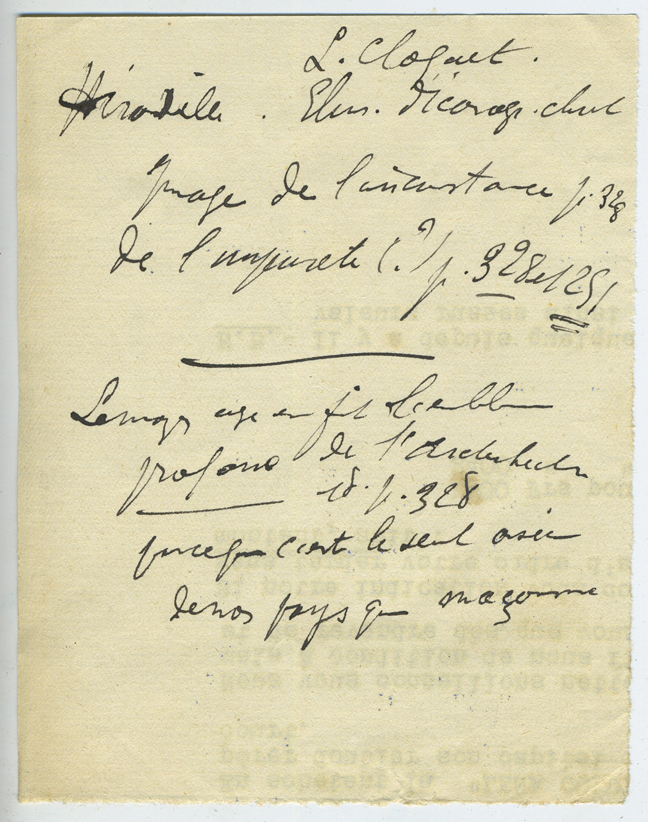 L. Cloquet.
Hirondelle. Elem. d'iconogr. chret
Image de l'inconstance p. 328
de l'impureté (?) p. 328 et 251
Le moyen age en fit l'emblème
profane de l'Architecture
id. p. 328
parceque c'est le seul oiseau
de nos pays qui maçonne